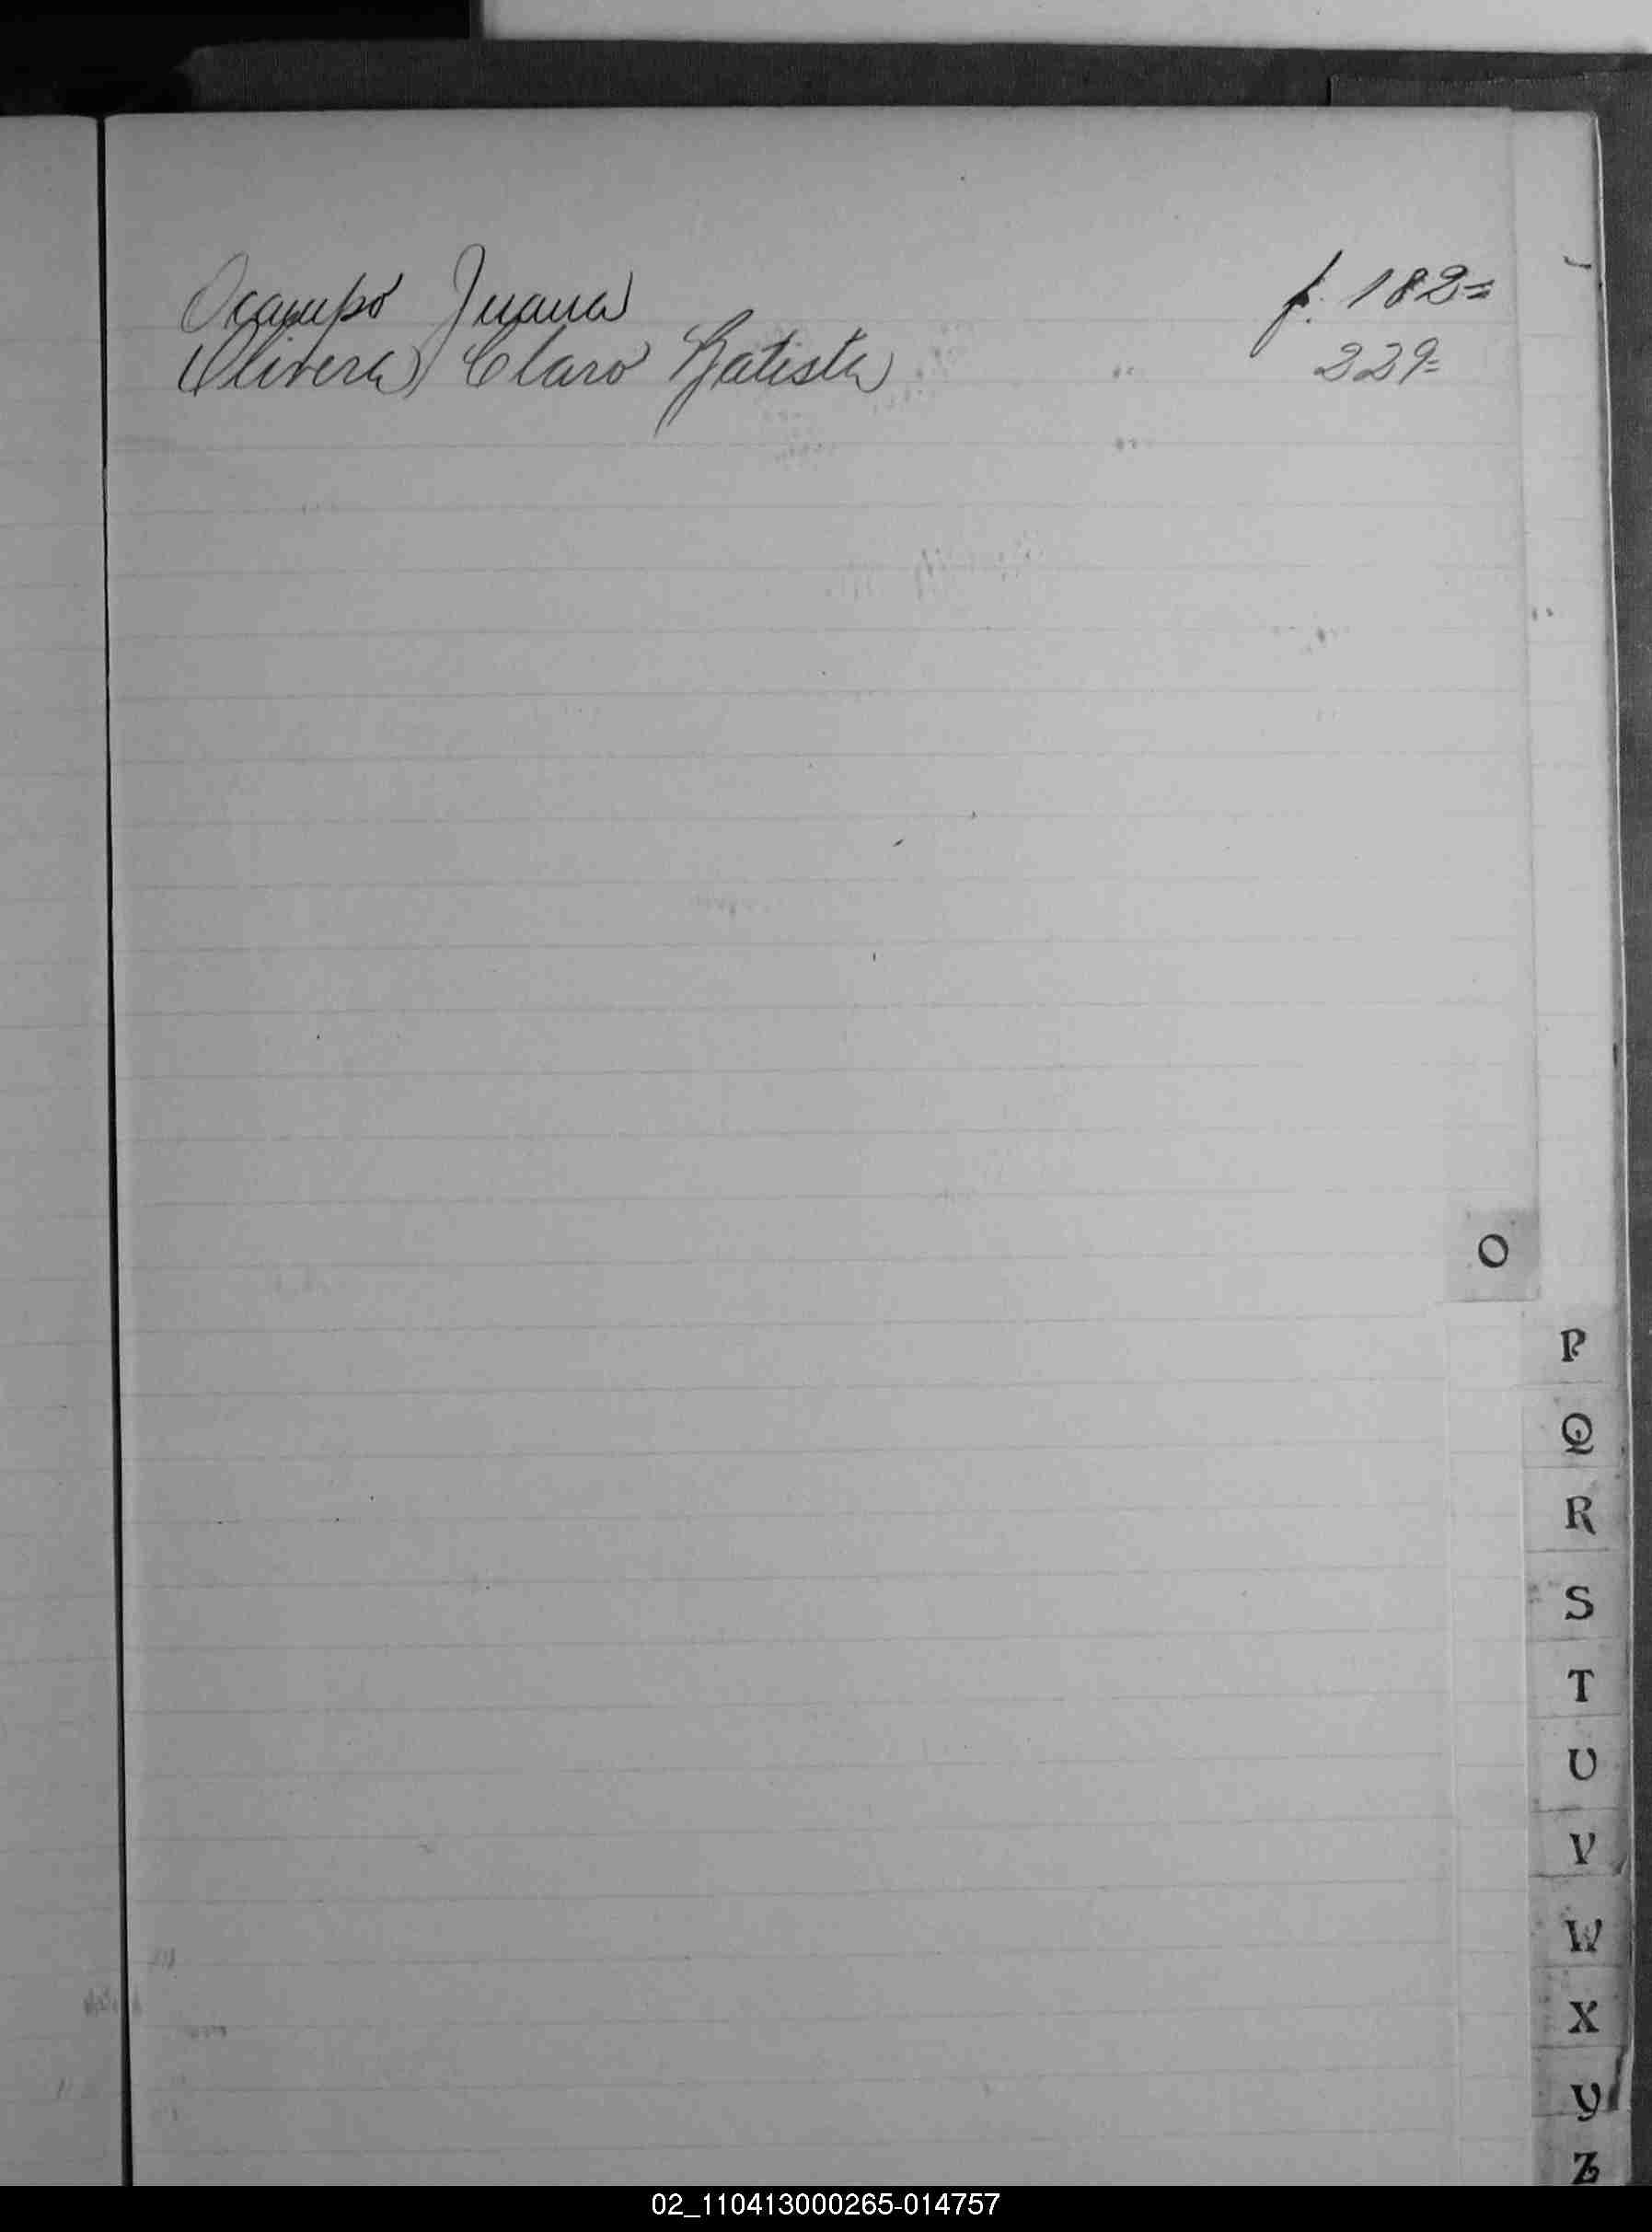 Ocampo Juana f. 182=
Olivera Claro Batista 229=
O
P
Q
R
S
T
U
V
W
X
Y
Z
02_110413000265-014757